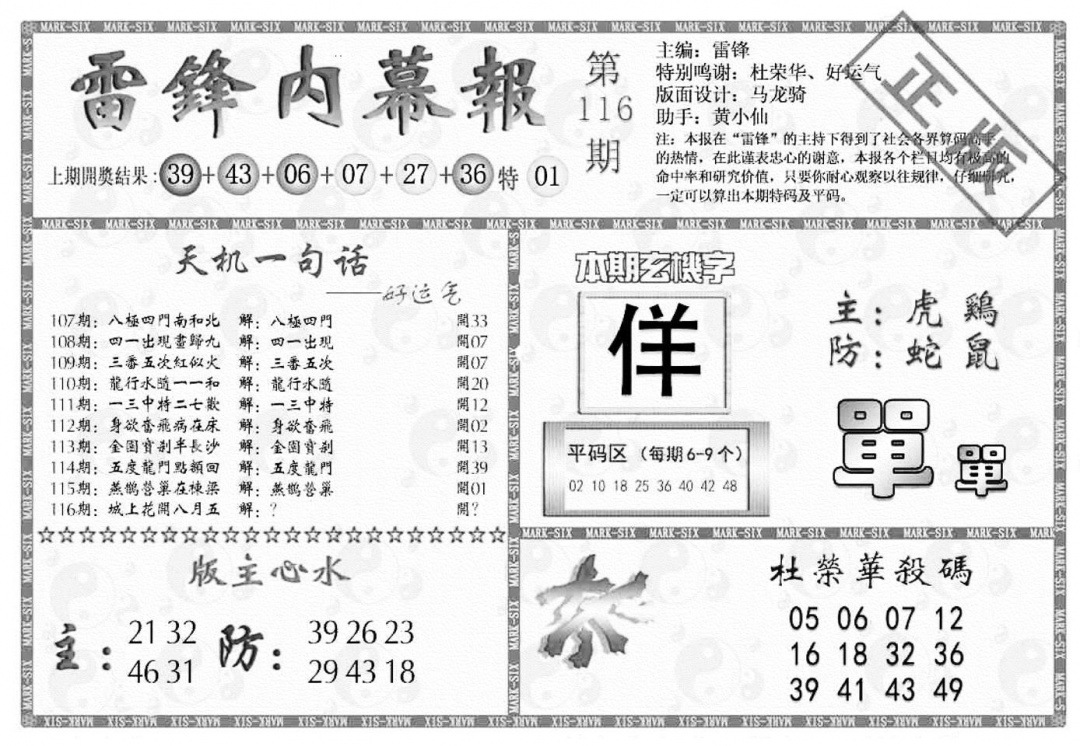 雷鋒内幕報
第
116
期
主编：雷锋
特别鸣谢：杜荣华、好运气
版面设计：马龙骑
助手：黄小仙
注：本报在“雷锋”的主持下得到了社会各界算码高手
的热情，在此谨表忠心的谢意，本报各个栏目均有极高的
命中率和研究价值，只要你耐心观察以往规律，仔细研究，
一定可以算出本期特码及平码。
正版
上期開獎結果：39+43+06+07+27+36特 01
天机一句话
——好运气
107期：八極四門南和北 解：八極四門 開33
108期：四一出現畫歸九 解：四一出現 開07
109期：三番五次紅似火 解：三番五次 開07
110期：龍行水隨一一和 解：龍行水隨 開20
111期：一三中特二七歡 解：一三中特 開12
112期：身欲奮飛病在床 解：身欲奮飛 開02
113期：金園寳刹半長沙 解：金園寳刹 開13
114期：五度龍門點額回 解：五度龍門 開39
115期：燕鹊營巢在棟梁 解：燕鹊營巢 開01
116期：城上花開八月五 解：？ 開？
☆☆☆☆☆☆☆☆☆☆☆☆☆☆☆☆☆☆☆☆☆☆☆
本期玄機字
佯
平码区（每期6-9个）
02 10 18 25 36 40 42 48
主：虎 鷄
防：蛇 鼠
單 單
版主心水
主： 21 32
46 31
防： 39 26 23
29 43 18
杀
杜榮華殺碼
05 06 07 12
16 18 32 36
39 41 43 49
MARK-SIX